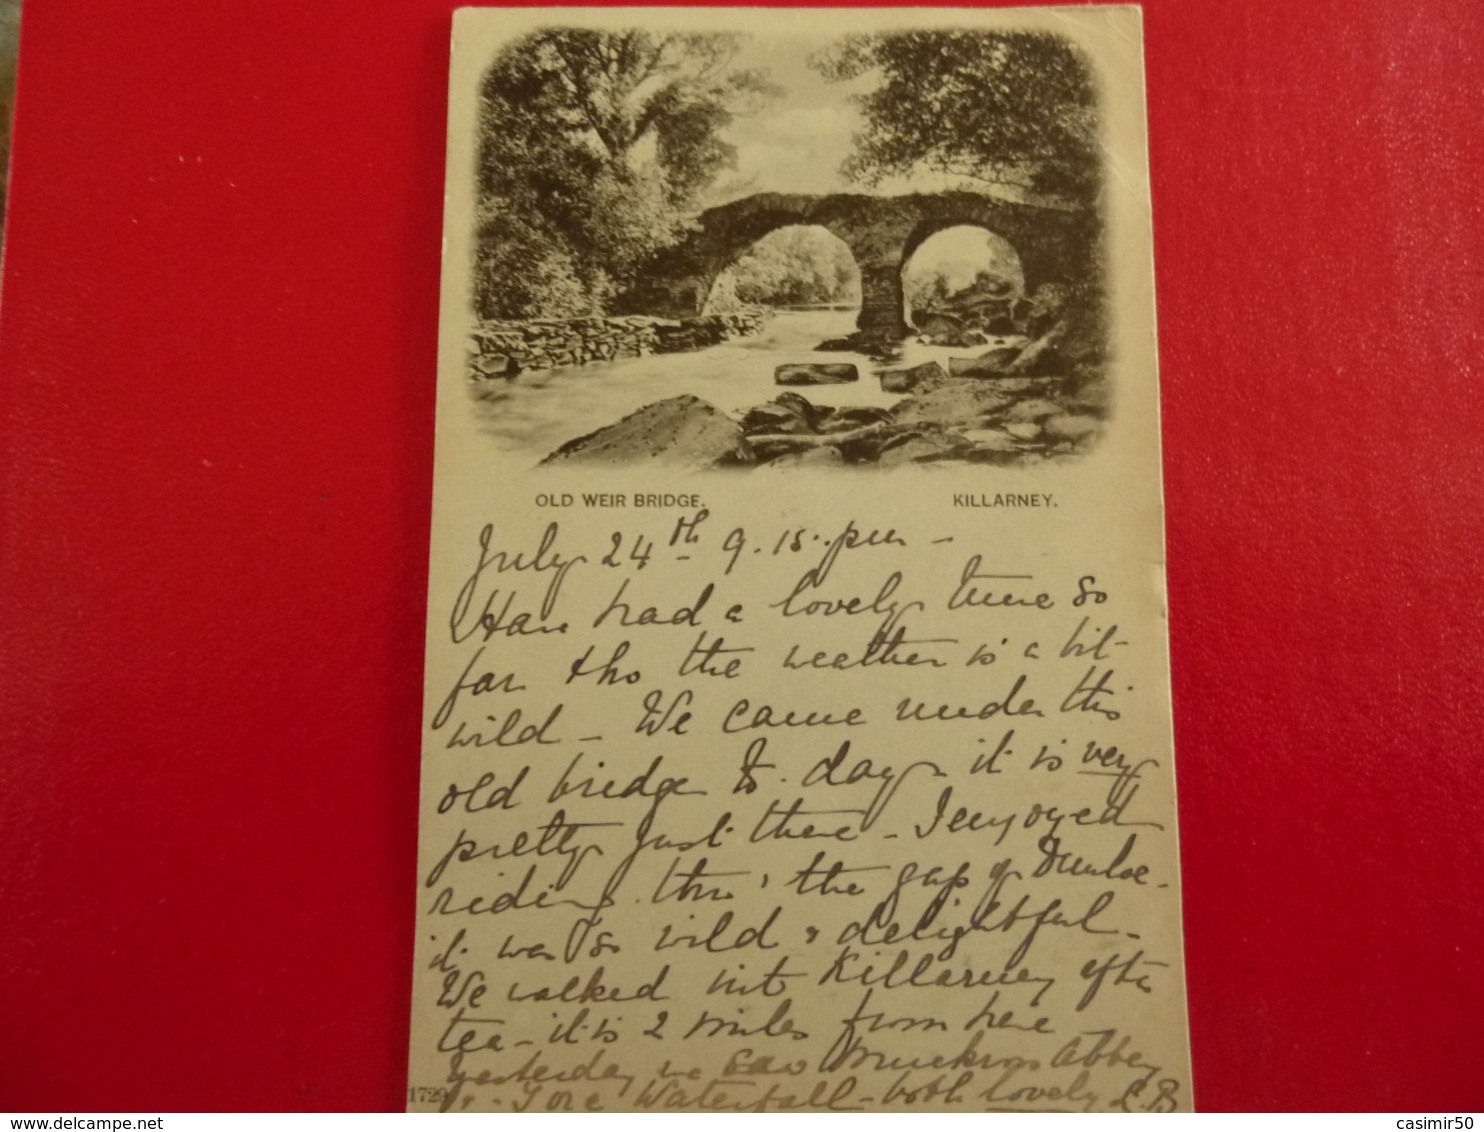 OLD WEIR BRIDGE. KILLARNEY.
July 24th 9.15. pm -
Have had a lovely time so
far tho the weather is a bit
wild - We came under this
old bridge to. day - it is very
pretty just there - I enjoyed
riding thro' the gap of Dunloe -
it was so wild & delightful -
We walked into Killarney after
tea - it is 2 miles from here
Yesterday we saw Muckross Abbey
Torc Waterfall - both lovely
1729
www.delcampe.net
casimir50